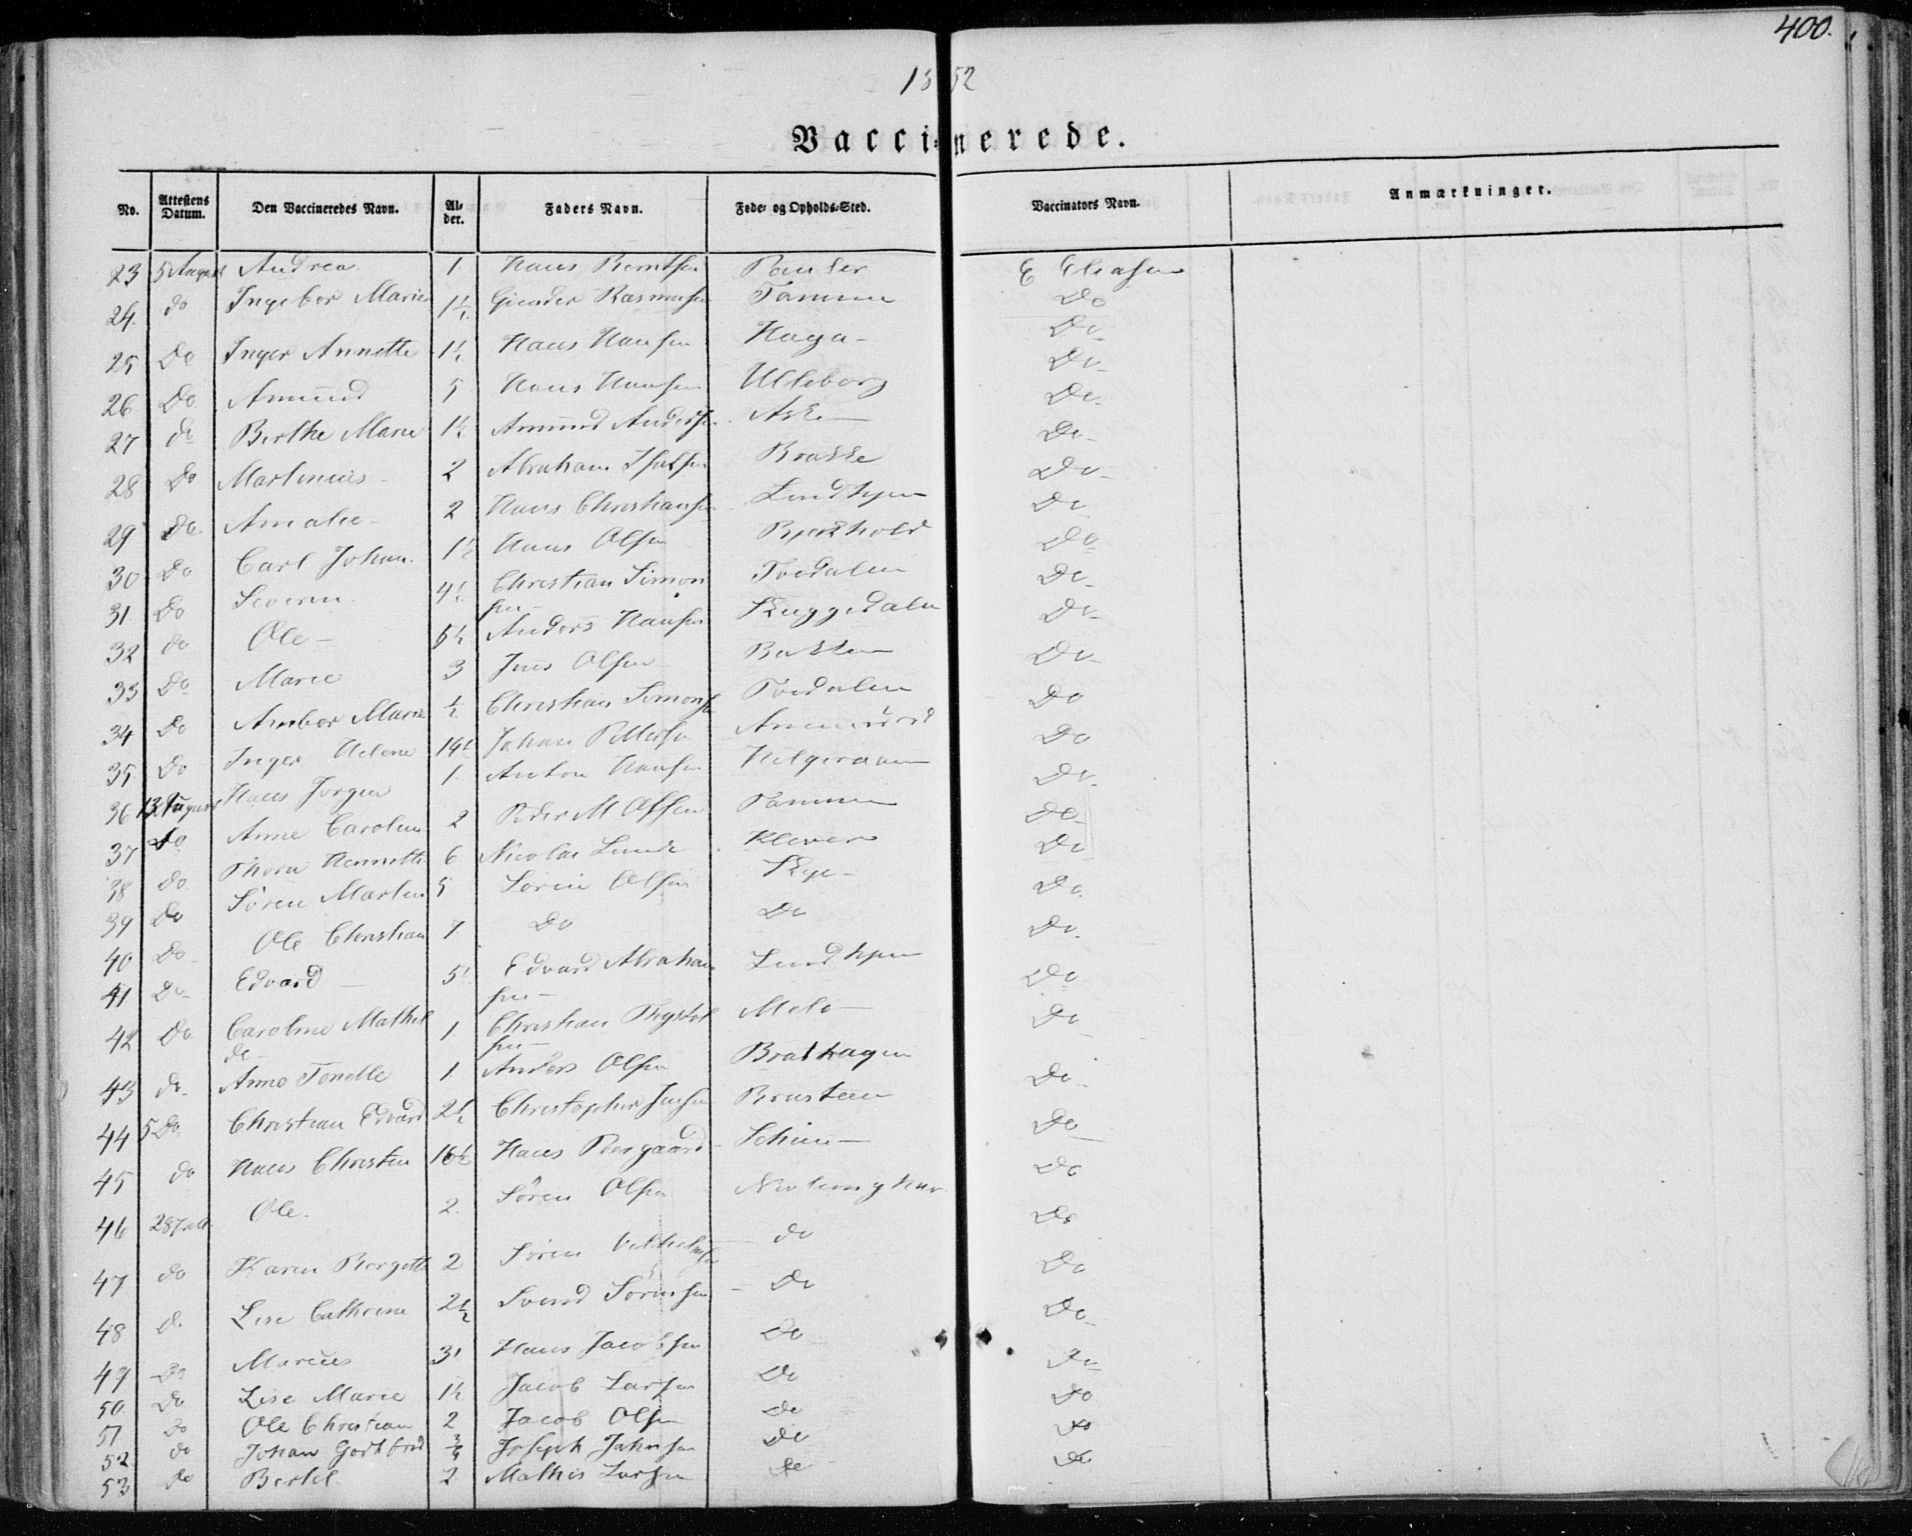 400.
1852
Vaccinerede.
No. Attestens Datum. Den Vaccineredes Navn. Al- der. Faders Navn. Føde- og Opholds-Sted. Vaccinators Navn. Anmærkninger.
23 5 August Andrea 1 Hans Berntsen E Eliasen
24 do Ingebor Marie 1½ Gunder Rasmusen Tammen Do
25 Do Inger Annette 1½ Hans Hansen Haga - Do
26 Do Amund 5 Hans Hansen Ulleborg Do
27 do Berthe Marie 1½ Amund Andersen Ask - Do
28 Do Martinius 2 Abraham Brække Do
29 Do Amalie 2 Hans Christiansen Lindhjem Do
30 Do Carl Johan 1½ Hans Olsen Bjerkhold Do
31 Do Severin 4½ Christian Simon Tvedalen Do
sen -
32 do Ole - 5½ Anders Hansen Skuggedalen Do
33 Do Marie 3 Jens Olsen Bakken Do
34 Do Anbor Marie ½ Christian Simonsen Tvedalen Do
35 Do Inger Helene 14½ Johan Pettersen Do
36 13 August Hans Jørgen 1 Anton Hansen Helgeraaen Do
37 Do Anne Caroline 2 Peder M Olsen Tammen Do
38 Do Thora Hennette 6 Nicolai Lunde Klever Do
39 Do Søren Martin 5 Søren Olsen Do
40 Do Ole Christian 7 Do Do Do
41 Do Edvard - 5 Edvard Abraham Lindhjem Do
sen -
42 Do Caroline Mathil 1 Christian Melo - Do
de sen -
43 do Anne Tonette 1 Anders Olsen Brathagen Do
44 5 Do Christian Edvard 2½ Christopher Jensen Do
45 do Hans Christen 16½ Hans Do
46 28 Juli Ole 2 Søren Olsen Nevlunghav Do
47 do Karen Bergette 2 Søren do Do
48 do Lise Cathrine 2½ Svend Sørensen Do Do
49 Do Marius 3 Hans Jacobsen Do Do
50 Do Lise Marie 1½ Jacob Larsen Do Do
51 Do Ole Christian 2 Jacob Olsen do Do
52 do Johan Gottfred ¾ Joseph Johnsen Do do
53 do Bertel 2 Mathis Larsen do